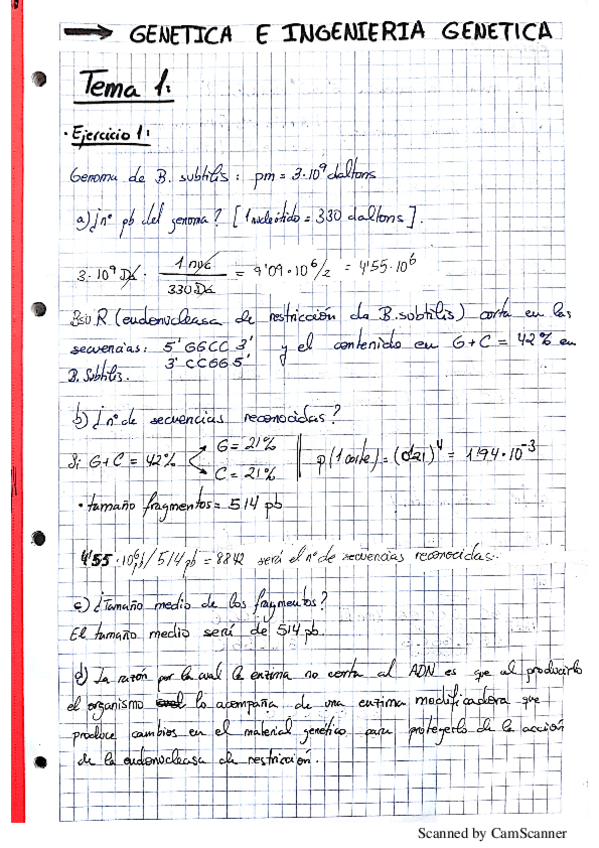 → GENETICA E INGENIERIA GENETICA
Tema 1:
· Ejercicio 1:
Genoma de B. subtilis: pm = 3·10⁹ daltons
a) ¿nº pb del genoma? [1 nucleótido = 330 daltons].
3·10⁹ Da · 1 nuc / 330 Da = 9'09·10⁶/2 = 4'55·10⁶
BsuR (endonucleasa de restricción de B. subtilis) corta en las
secuencias: 5' GGCC 3' y el contenido en G+C = 42% en
3' CCGG 5'
B. Subtilis.
b) ¿nº de secuencias reconocidas?
Si G+C = 42% G = 21% C = 21% p(1 corte) = (0'21)⁴ = 1'94·10⁻³
· tamaño fragmentos = 514 pb
4'55·10⁶pb/514 pb = 8842 será el nº de secuencias reconocidas.
c) ¿Tamaño medio de los fragmentos?
El tamaño medio será de 514 pb.
d) La razón por la cual la enzima no corta al ADN es que al producirlo
el organismo lo acompaña de una enzima modificadora que
produce cambios en el material genético para protegerlo de la acción
de la endonucleasa de restricción.
Scanned by CamScanner